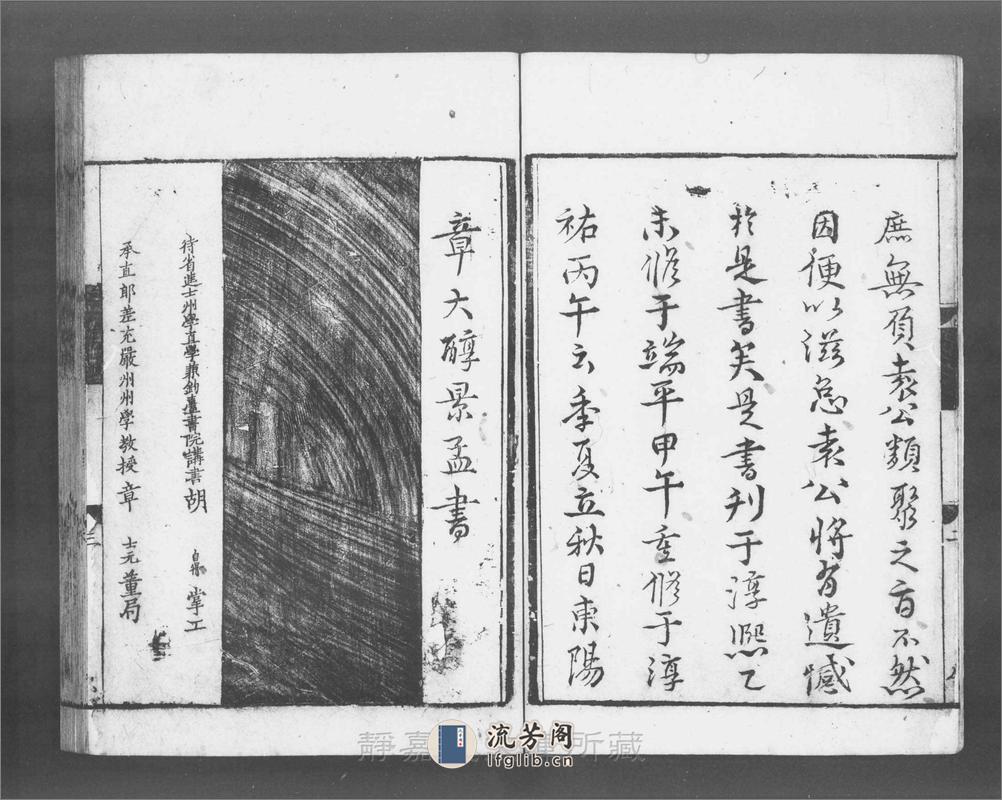 庶無負袁公類聚之旨不然
因便以滋怠袁公將有遺憾
於是書矣是書刋于淳熈乙
未修于端平甲午重修于淳
祐丙午云季夏立秋日東陽
章大醇景孟書
待省進士州學直學兼釣臺書院講書胡 自得 掌工
承直郎差充嚴州州學教授章 士元 董局
二
三
靜嘉 所藏
流芳阁
lfglib.cn